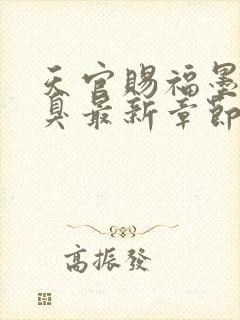 天官賜福墨
臭最新章節
高振發